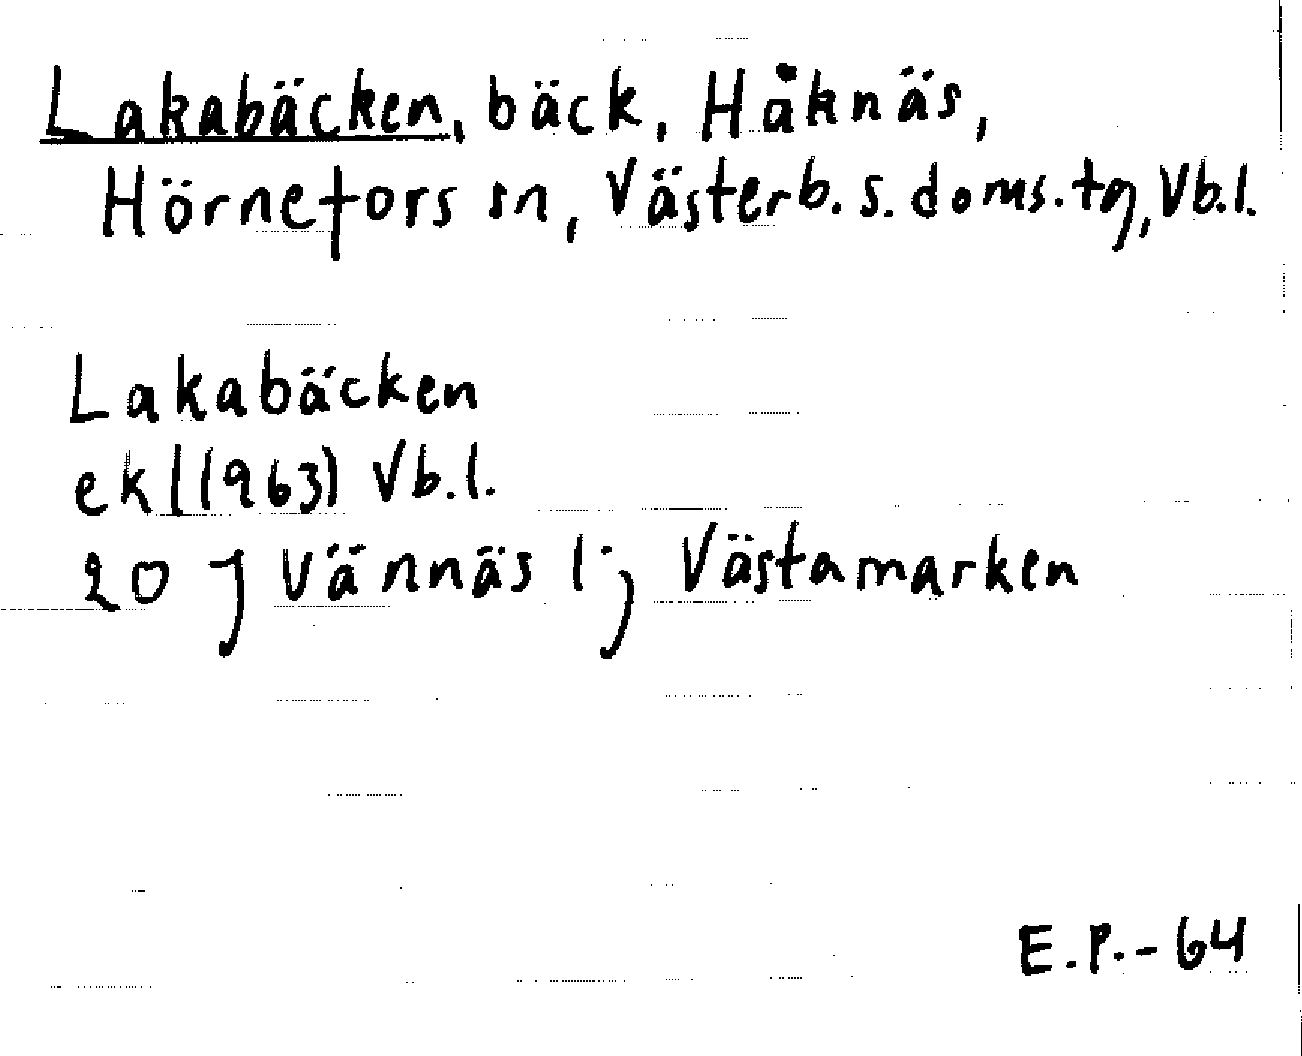 Lakabäcken, bäck, Håknäs,
Hörnefors sn, Västerb. s. doms. tg, Vb.l.
Lakabäcken
ekl (1963) Vb.l.
20 J Vännäs l j Västamarken
E.P.-64